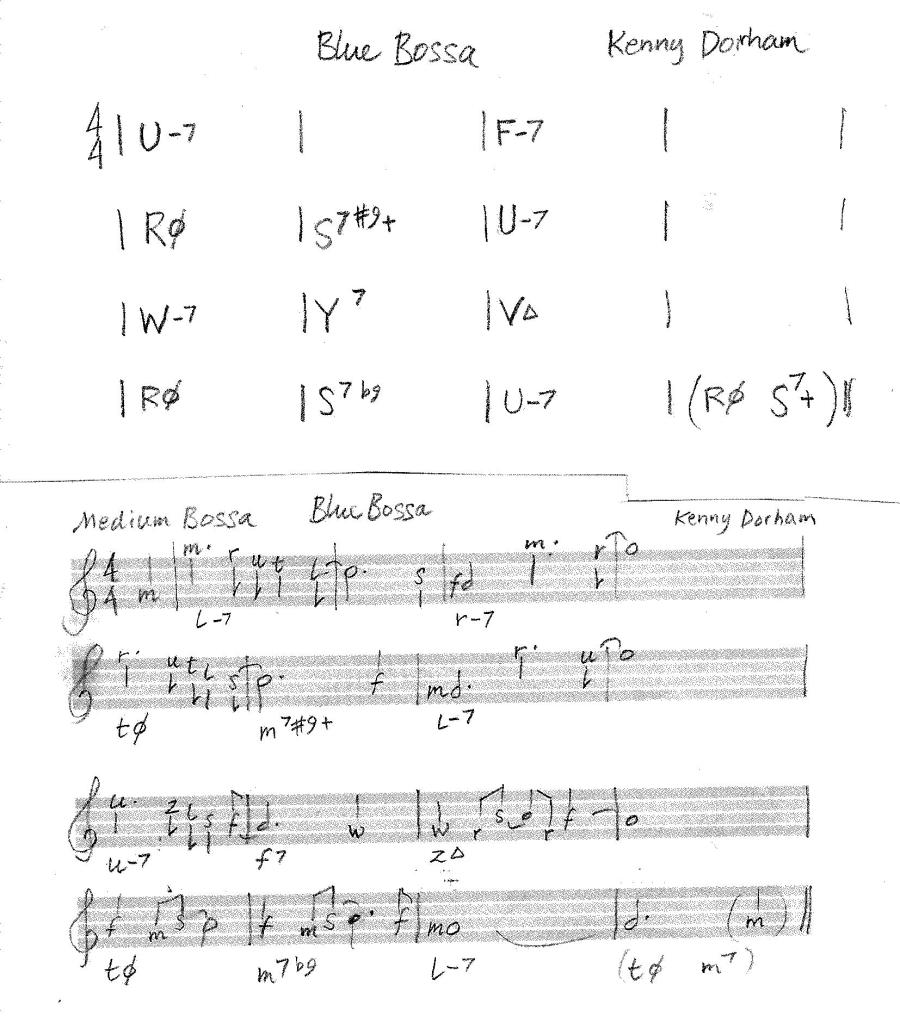 Blue Bossa Kenny Dorham
4/4 | U-7 | | F-7 | |
| RØ | S7#9+ | U-7 | |
| W-7 | Y7 | VΔ | |
| RØ | S7b9 | U-7 | (RØ S7+) ||
Medium Bossa Blue Bossa Kenny Dorham
4/4 m m. r u t L p. s f d m. r o
L-7 r-7
r. u t L s p. f m d. r. u o
tØ m7#9+ L-7
u. z L s f d. w w r s r f o
u-7 f7 zΔ
f m s p f m s p. f m o d. (m)
tØ m7b9 L-7 (tØ m7)